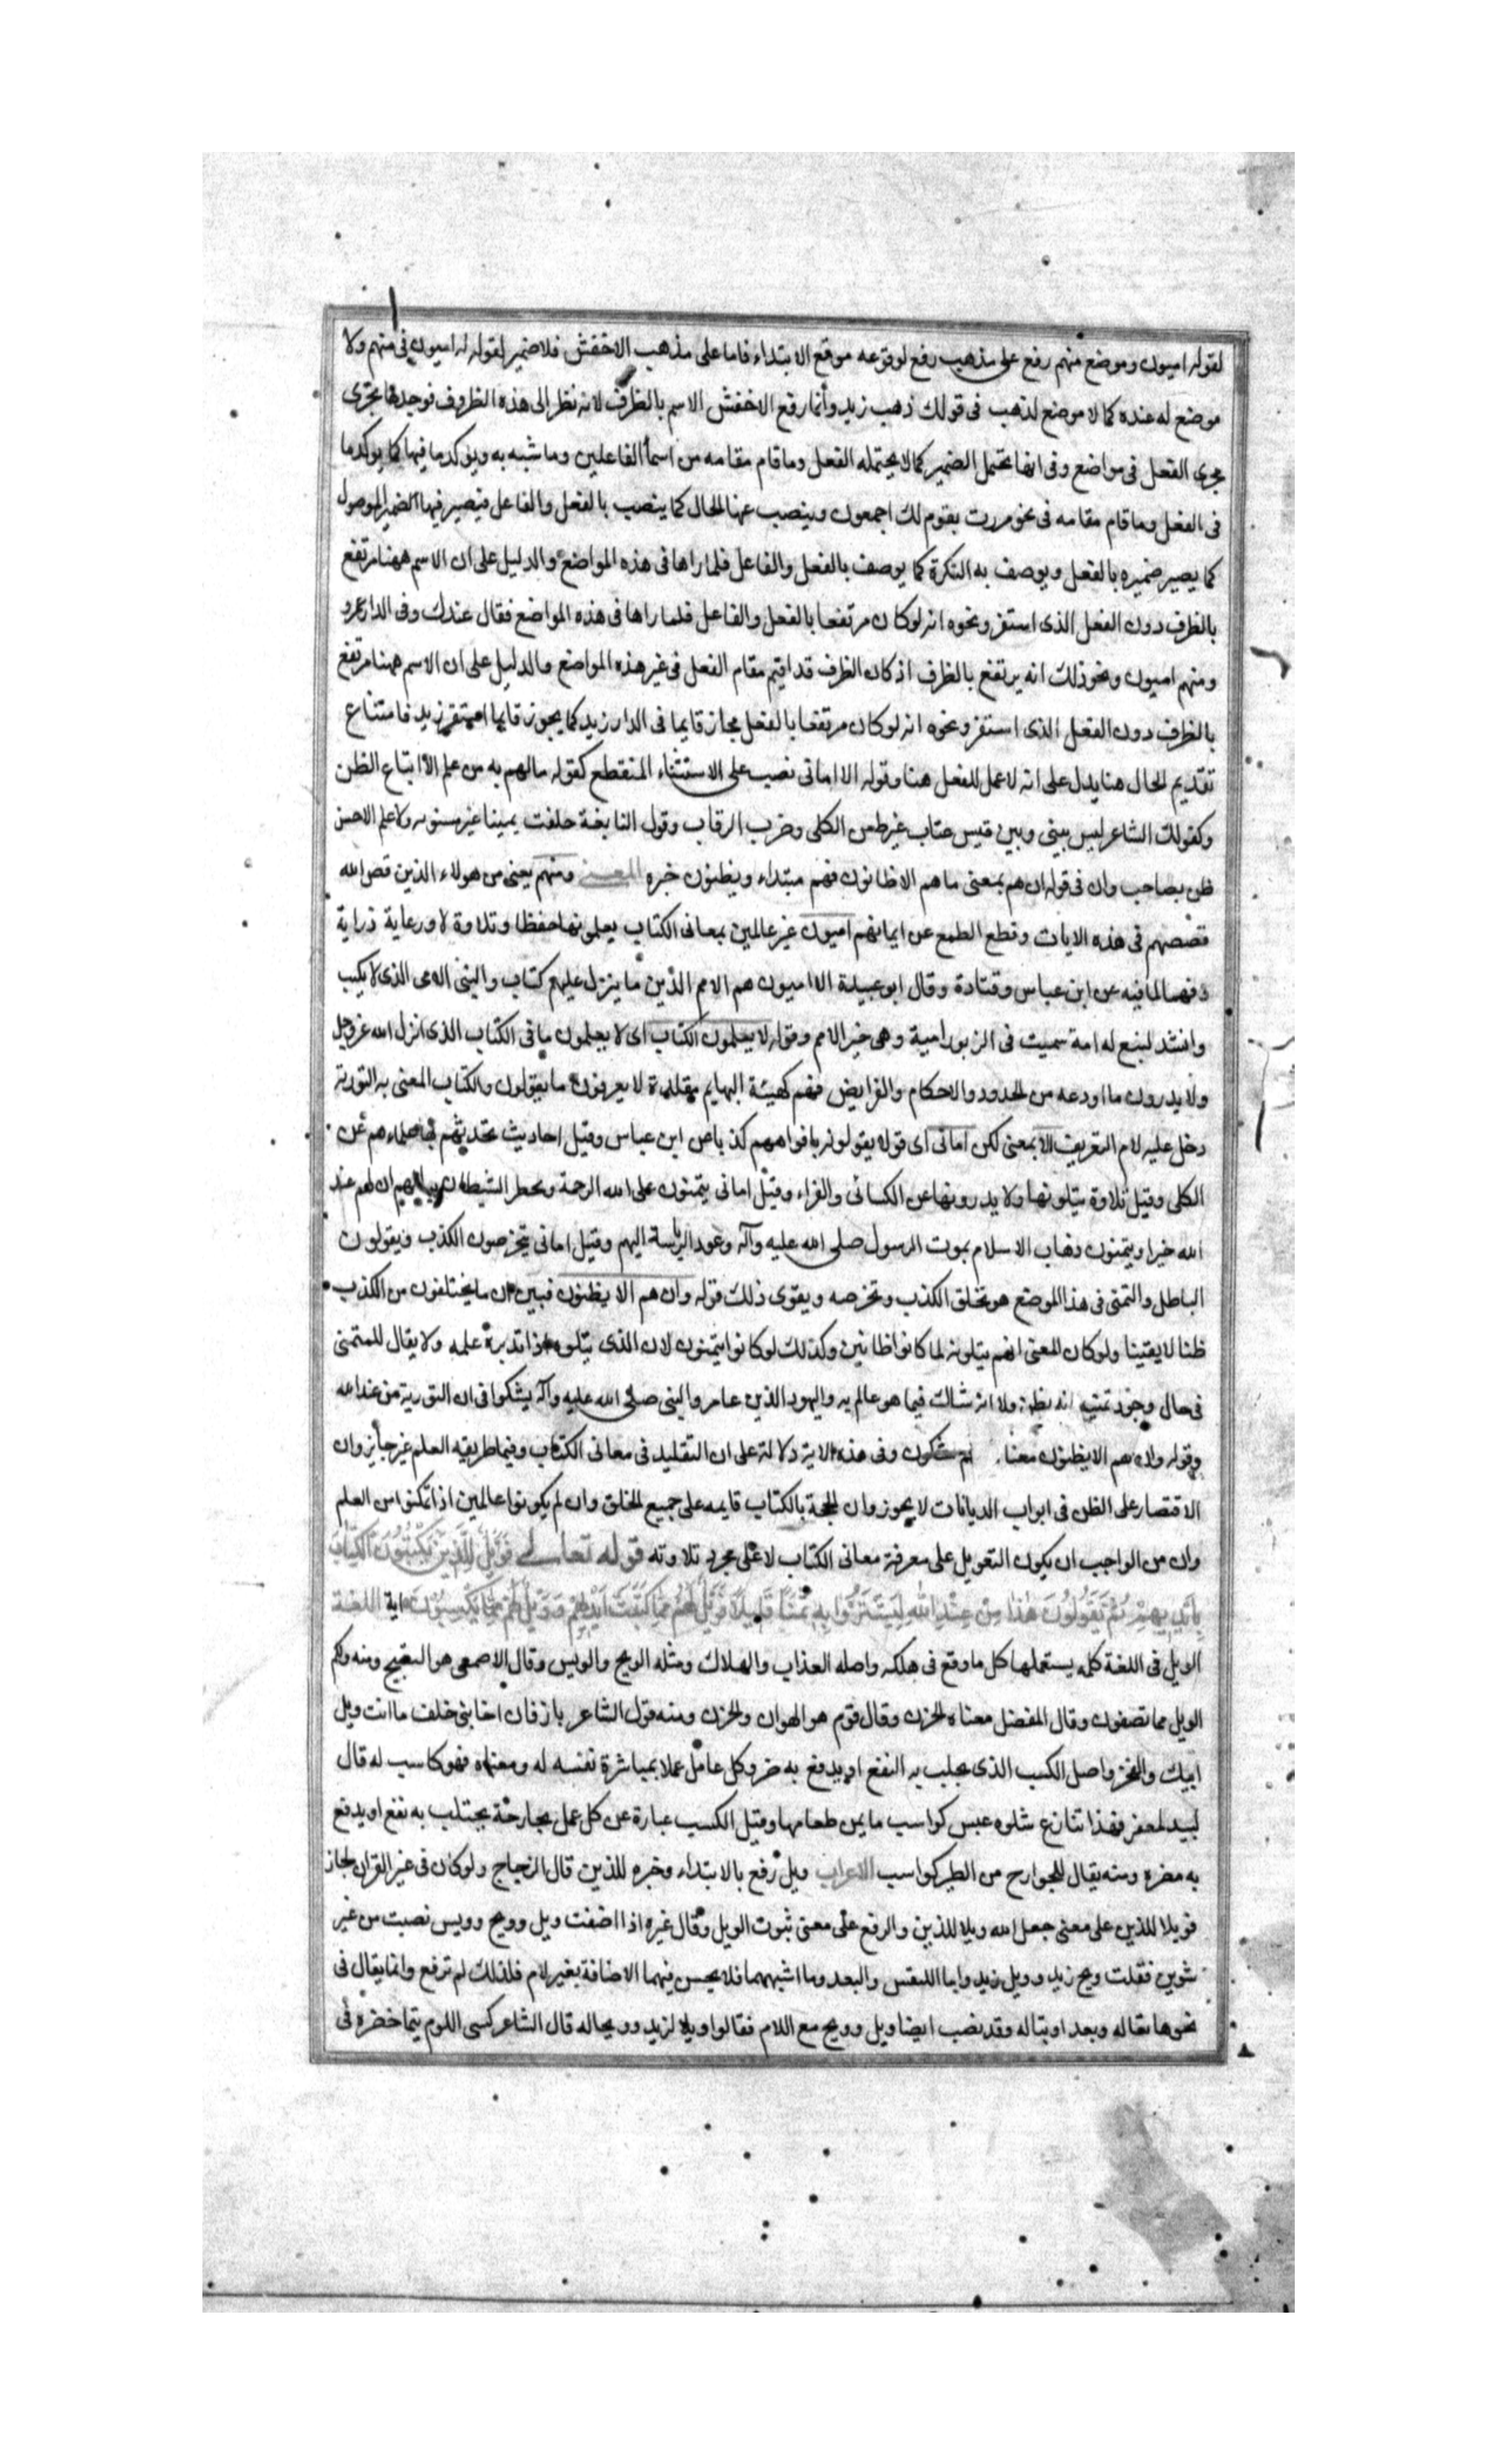 لقوله اميون وموضع منهم رفع على مذهب رفع لوقوعه موقع الابتداء فاما على مذهب الاخفش فلا ضمير لقوله اميون في منهم ولا
موضع له عنده كما لا موضع لذهب فى قولك ذهب زيد وأنما رفع الاخفش الاسم بالظرف لانه نظر إلى هذه الظروف فوجدها تجرى
مجرى الفعل فى مواضع وفى انها تحتمل الضمير كما لا يحتمله الفعل وما قام مقامه من اسمأ الفاعلين وما شبه به ويؤكد ما فيها كما يوكد ما
فى الفعل وما قام مقامه فى نحو مررت بقوم لك اجمعون وينصب عنها الحال كما ينصب بالفعل والفاعل فيصير فيها الضمير الموصول
كما يصير ضميره بالفعل ويوصف به النكرة كما يوصف بالفعل والفاعل فلما راها فى هذه المواضع والدليل على ان الاسم ههنا مرتفع
بالظرف دون الفعل الذى استقر ونحوه انه لو كان مرتفعا بالفعل والفاعل فلما راها فى هذه المواضع فقال عندك وفى الدار عمرو
ومنهم اميون ونحو ذلك انه يرتفع بالظرف اذ كان الظرف قد اقيم مقام الفعل فى غير هذه المواضع والدليل على ان الاسم ههنا مرتفع
بالظرف دون الفعل الذى استقر ونحوه انه لو كان مرتفعا بالفعل لجاز قايما فى الدار زيد كما يجوز قايما استقر زيد فامتناع
تقديم الحال هنا يدل على انه لا عمل للفعل هنا وقوله الا امانى نصب على الاستثناء المنقطع كقوله ما لهم به من علم الا اتباع الظن
وكقولك الشاعر ليس بينى وبين قيس عتاب غير طعن الكلى وضرب الرقاب وقول النابغة حلفت يمينا غير مثنويه ولا علم الا حسن
ظن بصاحب وان فى قوله ان هم بمعنى ما هم الا ظانون فهم مبتداء ويظنون خبره المعنى ومنهم يعنى من هولاء الذين قص الله
قصصهم فى هذه الايات وقطع الطمع عن ايمانهم اميون غير عالمين بمعانى الكتاب يعلمونها حفظا وتلاوة لا ورعاية دراية
وفهما لما فيه عن ابن عباس وقتادة وقال ابو عبيدة الاميون هم الامم الذين ما ينزل عليهم كتاب والنبى الامى الذى لا يكتب
وانشد لتبع له امة سميت فى الزبور امية وهى خير الامم وقوله لا يعلمون الكتاب اى لا يعلمون ما فى الكتاب الذى انزل الله عز وجل
ولا يدرون ما اودعه من الحدود والاحكام والفرايض فهم كهيئة البهايم مقلدة لا يعرفون ما يقولون والكتاب المعنى به التورية
دخل عليه لام التعريف الا بمعنى لكن امانى اى قولا يقولونه بافواههم كذبا عن ابن عباس وقيل احاديث تحدثهم بها علماءهم عن
الكلبى وقيل تلاوة يتلونها ولا يدرونها عن الكسائى والفراء وقيل امانى يتمنون على الله الرحمة ويخطر الشيطان ببالهم ان لهم عند
الله خيرا ويتمنون ذهاب الاسلام بموت الرسول صلى الله عليه وآله وعود الرياسة اليهم وقيل امانى يتخرصون الكذب ويقولون
الباطل والتمنى فى هذا الموضع هو تخلق الكذب وتخرصه ويقوى ذلك قوله وان هم الا يظنون فبين ان ما يختلفون من الكذب
ظنا لا يقينا ولو كان المعنى انهم يتلونه لما كانوا ظانين وكذلك لو كانوا يتمنون لان الذى يتلوه اذا تدبره علمه ولا يقال للمتمنى
فى حال وجود تمنيه انه يظن ولا انه شاك فيما هو عالم به واليهود الذين عاصروا النبى صلى الله عليه وآله يشكوا فى ان التورية من عند الله
وقوله وان هم الا يظنون معناه انهم يشكون وفى هذه الاية دلالة على ان التقليد فى معانى الكتاب وفيما طريقه العلم غير جايز وان
الاقتصار على الظن فى ابواب الديانات لا يجوز وان الحجة بالكتاب قايمه على جميع الخلق وان لم يكونوا عالمين اذا تمكنوا من العلم
وان من الواجب ان يكون التعويل على معرفة معانى الكتاب لا على مجرد تلاوته قوله تعالى فَوَيْلٌ لِلَّذِينَ يَكْتُبُونَ الْكِتَابَ
بِأَيْدِيهِمْ ثُمَّ يَقُولُونَ هَذَا مِنْ عِنْدِ اللَّهِ لِيَشْتَرُوا بِهِ ثَمَنًا قَلِيلًا فَوَيْلٌ لَهُمْ مِمَّا كَتَبَتْ أَيْدِيهِمْ وَوَيْلٌ لَهُمْ مِمَّا يَكْسِبُونَ اية اللغة
الويل فى اللغة كلمة يستعملها كل ما وقع فى هلكه واصله العذاب والهلاك ومثله الويح والويس وقال الاصمعى هو التقبيح ومنه ولكم
الويل مما تصفون وقال المفضل معناه الحزن وقال قوم هو الهوان والخزى ومنه قول الشاعر يا زبرقان اخا بنى خلف ما انت ويل
ابيك والفخر واصل الكسب الذى يجلب به النفع او يدفع به ضر وكل عامل عملا بمباشرة نفسه له ومعناه فهو كاسب له قال
لبيد لمعفر قهد تنازع شلوه غبس كواسب ما يمن طعامها وقيل الكسب عبارة عن كل عمل بجارحة يجتلب به نفع او يدفع
به مضره ومنه يقال للجوارح من الطير كواسب الاعراب ويل رفع بالابتداء وخبره للذين قال الزجاج ولو كان فى غير القران لجاز
فويلا للذين على معنى جعل الله ويلا للذين والرفع على معنى ثبوت الويل وقال غيره اذا اضفت ويل وويح وويس نصبت من غير
تنوين فقلت ويح زيد وويل زيد واما التعس والبعد وما اشبههما فلا يحسن فيهما الاضافة بغير لام فلذلك لم ترفع وانما يقال فى
نحوها تعسا له وبعدا وتبا له وقد نصب ايضا ويل وويح مع اللام فقالوا ويلا لزيد وويحا له قال الشاعر كسى اللوم تيما خضره فى